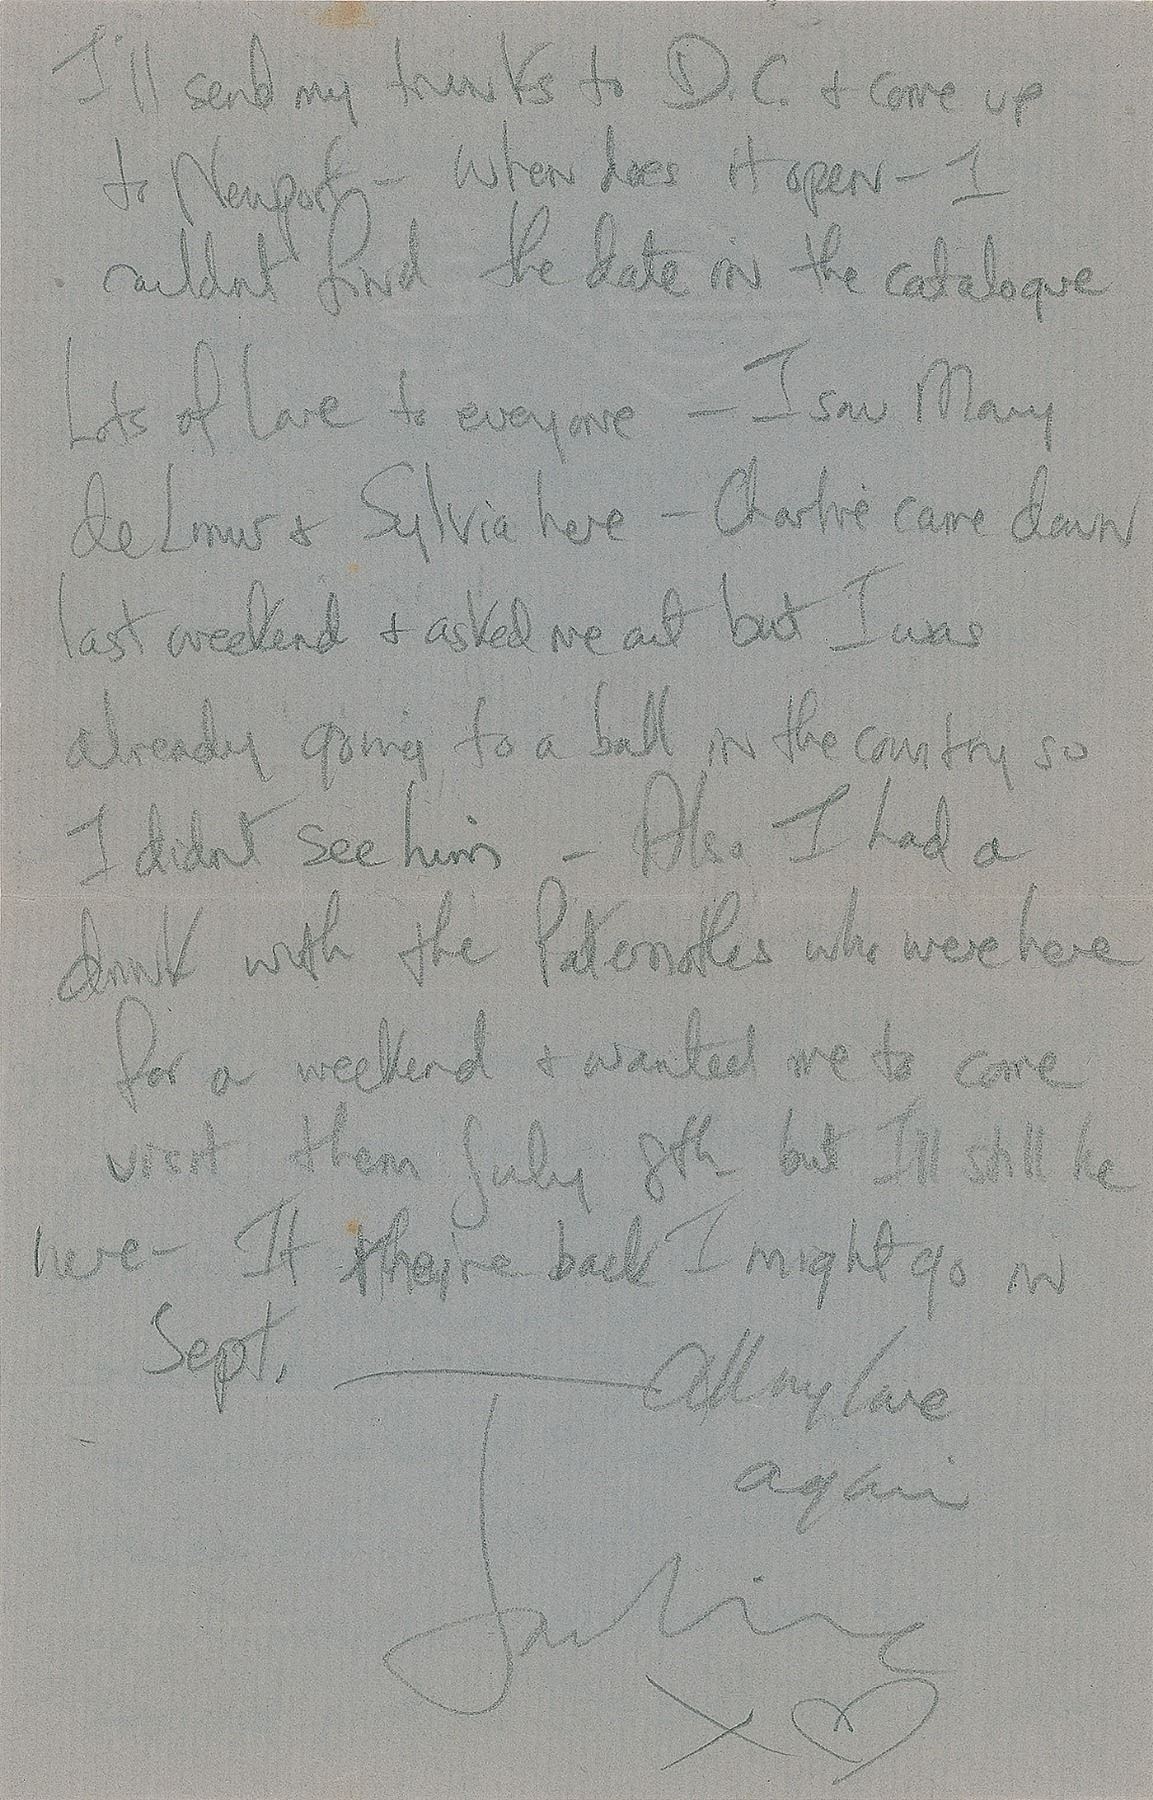 I'll send my trunks to D.C. + come up
to Newport - when does it open - I
couldnt find the date in the catalogue
Lots of love to everyone - I saw Mary
de Limur + Sylvia here - Charlie came down
last weekend + asked me out but I was
already going to a ball in the country so
I didnt see him - Also I had a
drink with the Paternottes who were here
for a weekend + wanted me to come
visit them July 8th but I'll still be
here - If they're back I might go in
Sept. — All my love
again
Jackie
X ♡